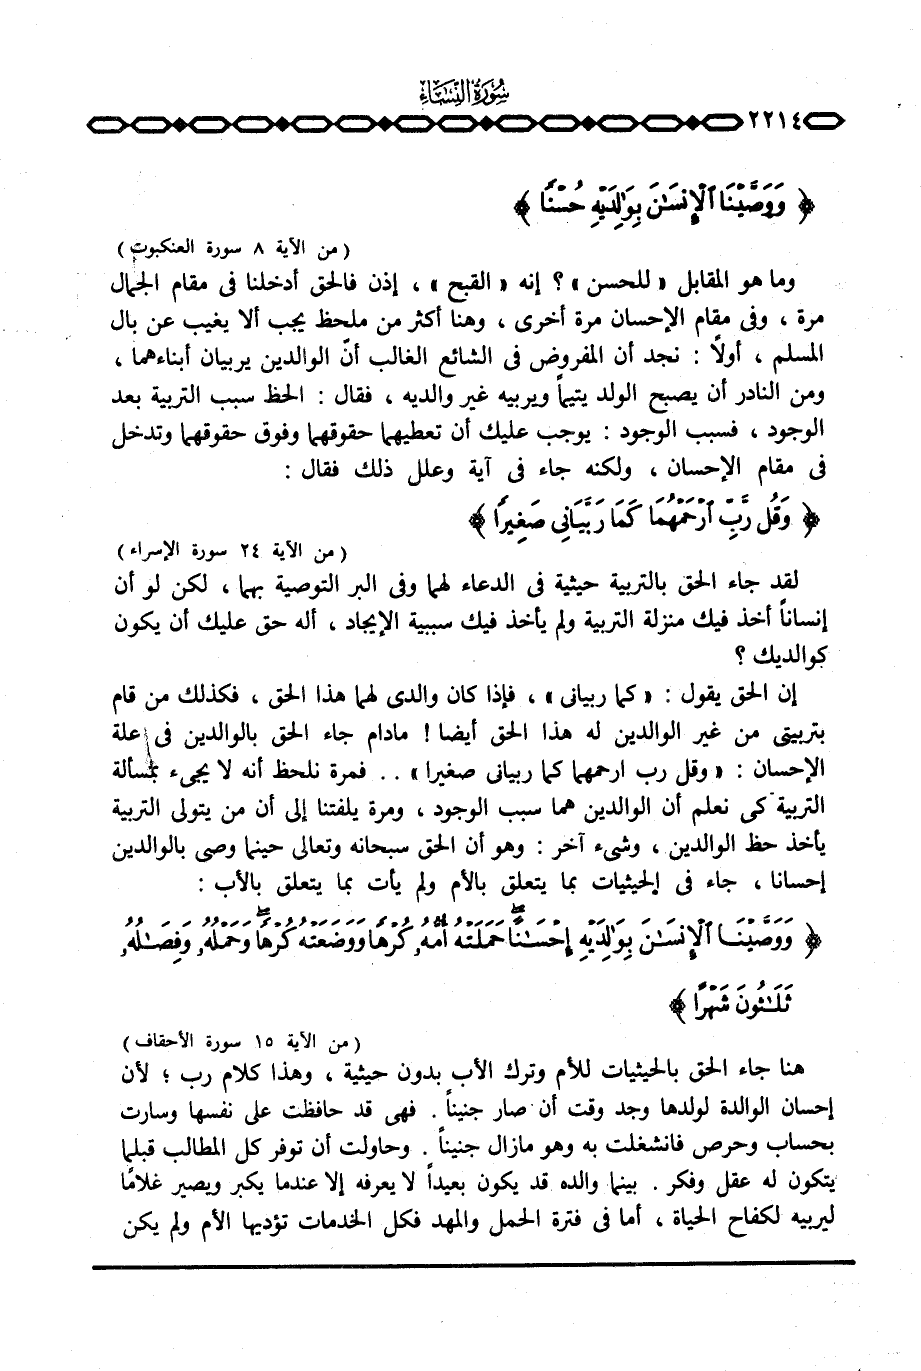 سورة النساء
٢٢١٤
﴿ وَوَصَّيْنَا ٱلْإِنسَٰنَ بِوَٰلِدَيْهِ حُسْنًا ﴾
( من الآية ٨ سورة العنكبوت )
وما هو المقابل « للحسن » ؟ إنه « القبح » ، إذن فالحق أدخلنا فى مقام الجمال
مرة ، وفى مقام الإحسان مرة أخرى ، وهنا أكثر من ملحظ يجب ألا يغيب عن بال
المسلم ، أولاً : نجد أن المفروض فى الشائع الغالب أنّ الوالدين يربيان أبناءهما ،
ومن النادر أن يصبح الولد يتيماً ويربيه غير والديه ، فقال : الحظ سبب التربية بعد
الوجود ، فسبب الوجود : يوجب عليك أن تعطيهما حقوقهما وفوق حقوقهما وتدخل
فى مقام الإحسان ، ولكنه جاء فى آية وعلل ذلك فقال :
﴿ وَقُل رَّبِّ ٱرْحَمْهُمَا كَمَا رَبَّيَانِى صَغِيرًا ﴾
( من الآية ٢٤ سورة الإسراء )
لقد جاء الحق بالتربية حيثية فى الدعاء لهما وفى البر التوصية بهما ، لكن لو أن
إنساناً أخذ فيك منزلة التربية ولم يأخذ فيك سببية الإيجاد ، أله حق عليك أن يكون
كوالديك ؟
إن الحق يقول : « كما ربيانى » ، فإذا كان والدى لهما هذا الحق ، فكذلك من قام
بتربيتى من غير الوالدين له هذا الحق أيضا ! مادام جاء الحق بالوالدين فى علة
الإحسان : « وقل رب ارحمهما كما ربيانى صغيرا » .. فمرة نلحظ أنه لا يجىء بمسألة
التربية كى نعلم أن الوالدين هما سبب الوجود ، ومرة يلفتنا إلى أن من يتولى التربية
يأخذ حظ الوالدين ، وشىء آخر : وهو أن الحق سبحانه وتعالى حينما وصى بالوالدين
إحسانا ، جاء فى الحيثيات بما يتعلق بالأم ولم يأت بما يتعلق بالأب :
﴿ وَوَصَّيْنَا ٱلْإِنسَٰنَ بِوَٰلِدَيْهِ إِحْسَٰنًا حَمَلَتْهُ أُمُّهُۥ كُرْهًا وَوَضَعَتْهُ كُرْهًا وَحَمْلُهُۥ وَفِصَٰلُهُۥ
ثَلَٰثُونَ شَهْرًا ﴾
( من الآية ١٥ سورة الأحقاف )
هنا جاء الحق بالحيثيات للأم وترك الأب بدون حيثية ، وهذا كلام رب ؛ لأن
إحسان الوالدة لولدها وجد وقت أن صار جنيناً . فهى قد حافظت على نفسها وسارت
بحساب وحرص فانشغلت به وهو مازال جنيناً . وحاولت أن توفر كل المطالب قبلما
يتكون له عقل وفكر . بينما والده قد يكون بعيداً لا يعرفه إلا عندما يكبر ويصير غلامًا
ليربيه لكفاح الحياة ، أما فى فترة الحمل والمهد فكل الخدمات تؤديها الأم ولم يكن